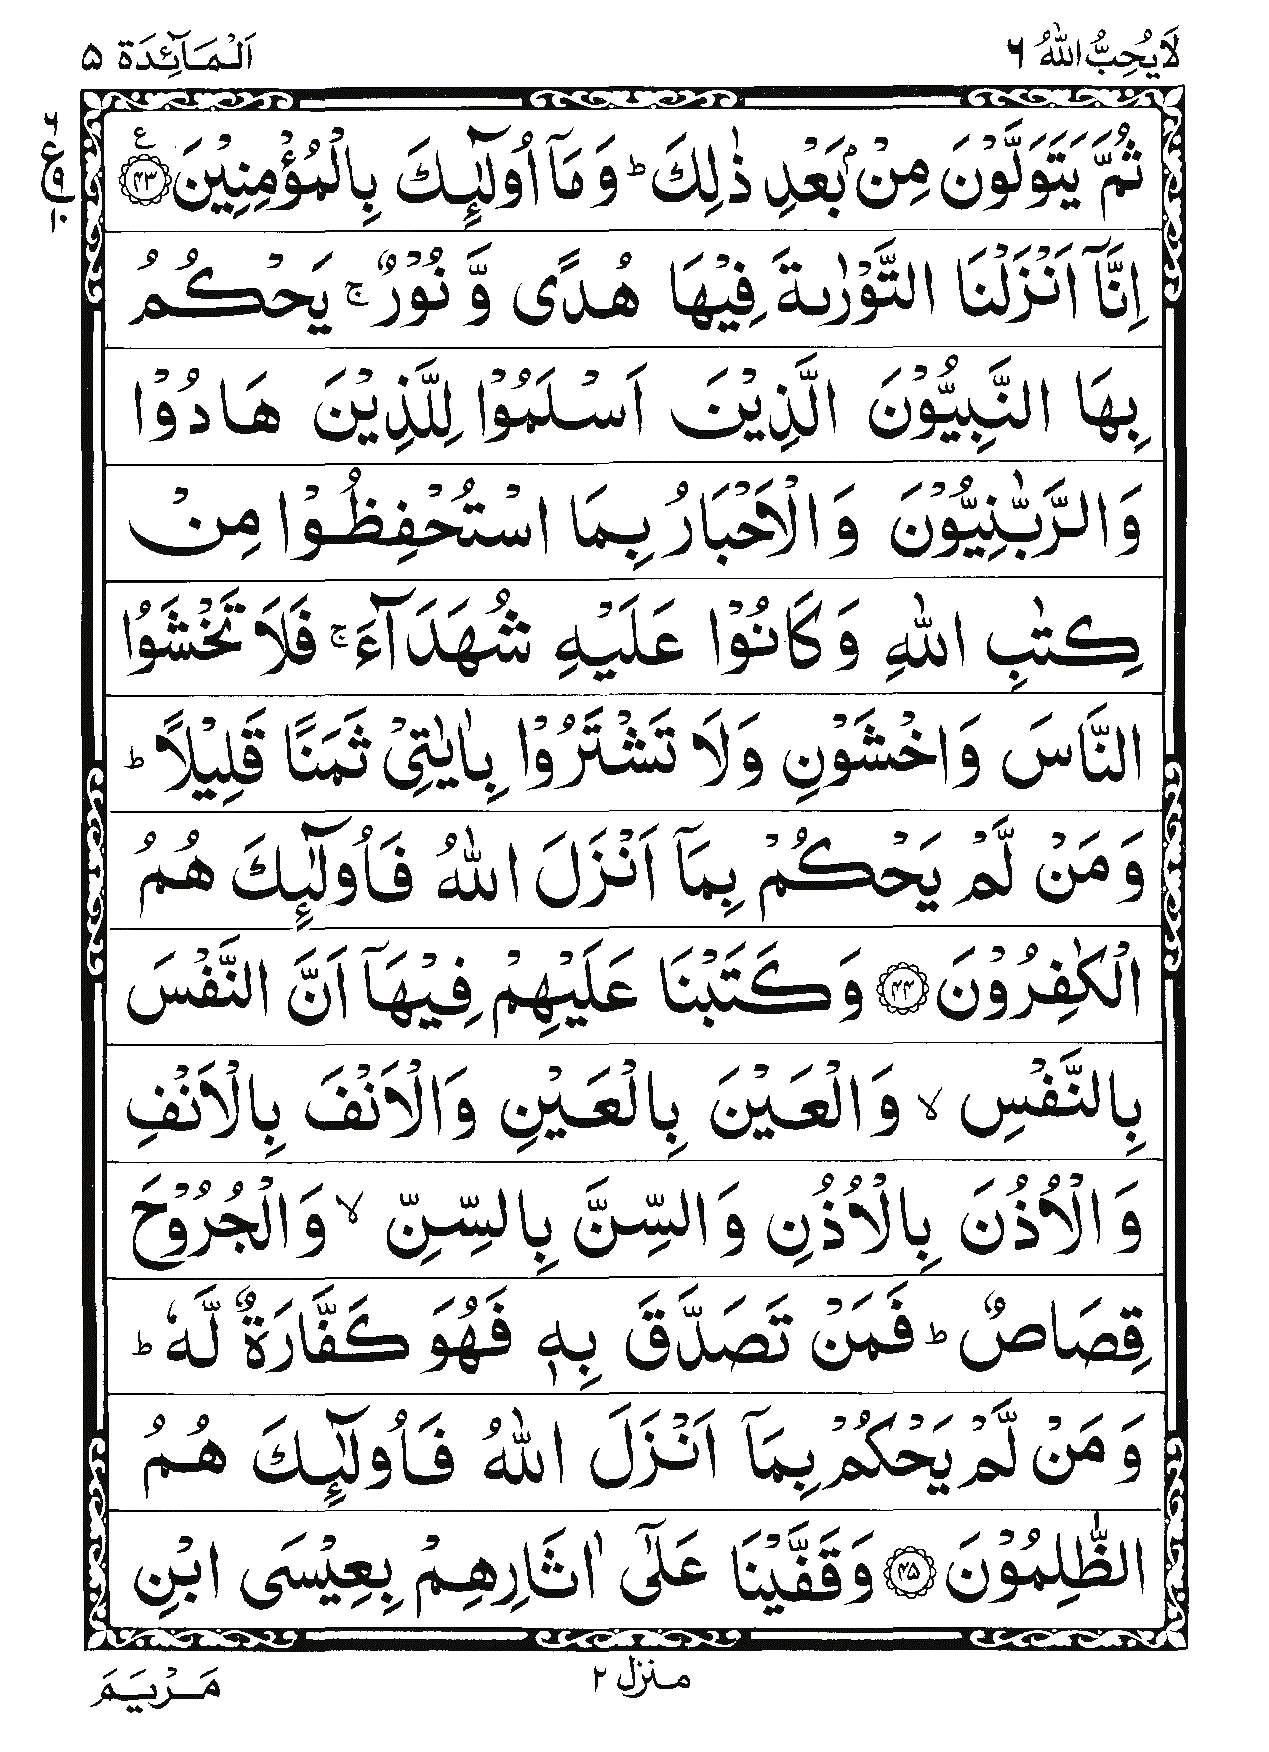 لَا يُحِبُّ اللهُ ٦
اَلْمَآئِدَة ۵
ثُمَّ يَتَوَلَّوْنَ مِنْۢ بَعْدِ ذٰلِكَ ؕ وَمَاۤ اُولٰٓئِكَ بِالْمُؤْمِنِيْنَ ﴿۴۳﴾ ع
٦ ع ۹ ۱۰
اِنَّاۤ اَنْزَلْنَا التَّوْرٰىةَ فِيْهَا هُدًى وَّ نُوْرٌ ۚ يَحْكُمُ
بِهَا النَّبِيُّوْنَ الَّذِيْنَ اَسْلَمُوْا لِلَّذِيْنَ هَادُوْا
وَالرَّبّٰنِيُّوْنَ وَالْاَحْبَارُ بِمَا اسْتُحْفِظُوْا مِنْ
كِتٰبِ اللهِ وَكَانُوْا عَلَيْهِ شُهَدَآءَ ۚ فَلَا تَخْشَوُا
النَّاسَ وَاخْشَوْنِ وَلَا تَشْتَرُوْا بِاٰيٰتِيْ ثَمَنًا قَلِيْلًا ؕ
وَمَنْ لَّمْ يَحْكُمْ بِمَاۤ اَنْزَلَ اللهُ فَاُولٰٓئِكَ هُمُ
الْكٰفِرُوْنَ ﴿۴۴﴾ وَكَتَبْنَا عَلَيْهِمْ فِيْهَاۤ اَنَّ النَّفْسَ
بِالنَّفْسِ ۙ وَالْعَيْنَ بِالْعَيْنِ وَالْاَنْفَ بِالْاَنْفِ
وَالْاُذُنَ بِالْاُذُنِ وَالسِّنَّ بِالسِّنِّ ۙ وَالْجُرُوْحَ
قِصَاصٌ ؕ فَمَنْ تَصَدَّقَ بِهٖ فَهُوَ كَفَّارَةٌ لَّهٗ ؕ
وَمَنْ لَّمْ يَحْكُمْ بِمَاۤ اَنْزَلَ اللهُ فَاُولٰٓئِكَ هُمُ
الظّٰلِمُوْنَ ﴿۴۵﴾ وَقَفَّيْنَا عَلٰۤى اٰثَارِهِمْ بِعِيْسَى ابْنِ
منزل ۲
مَرْيَمَ